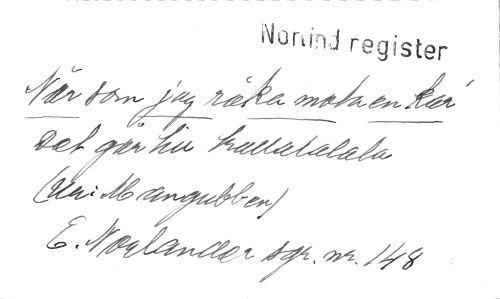 Norlind register
När som jag räka mota en kär
Det går hu hallalalala
(Ur: Mangubben)
E. Norlander sgr. nr. 148